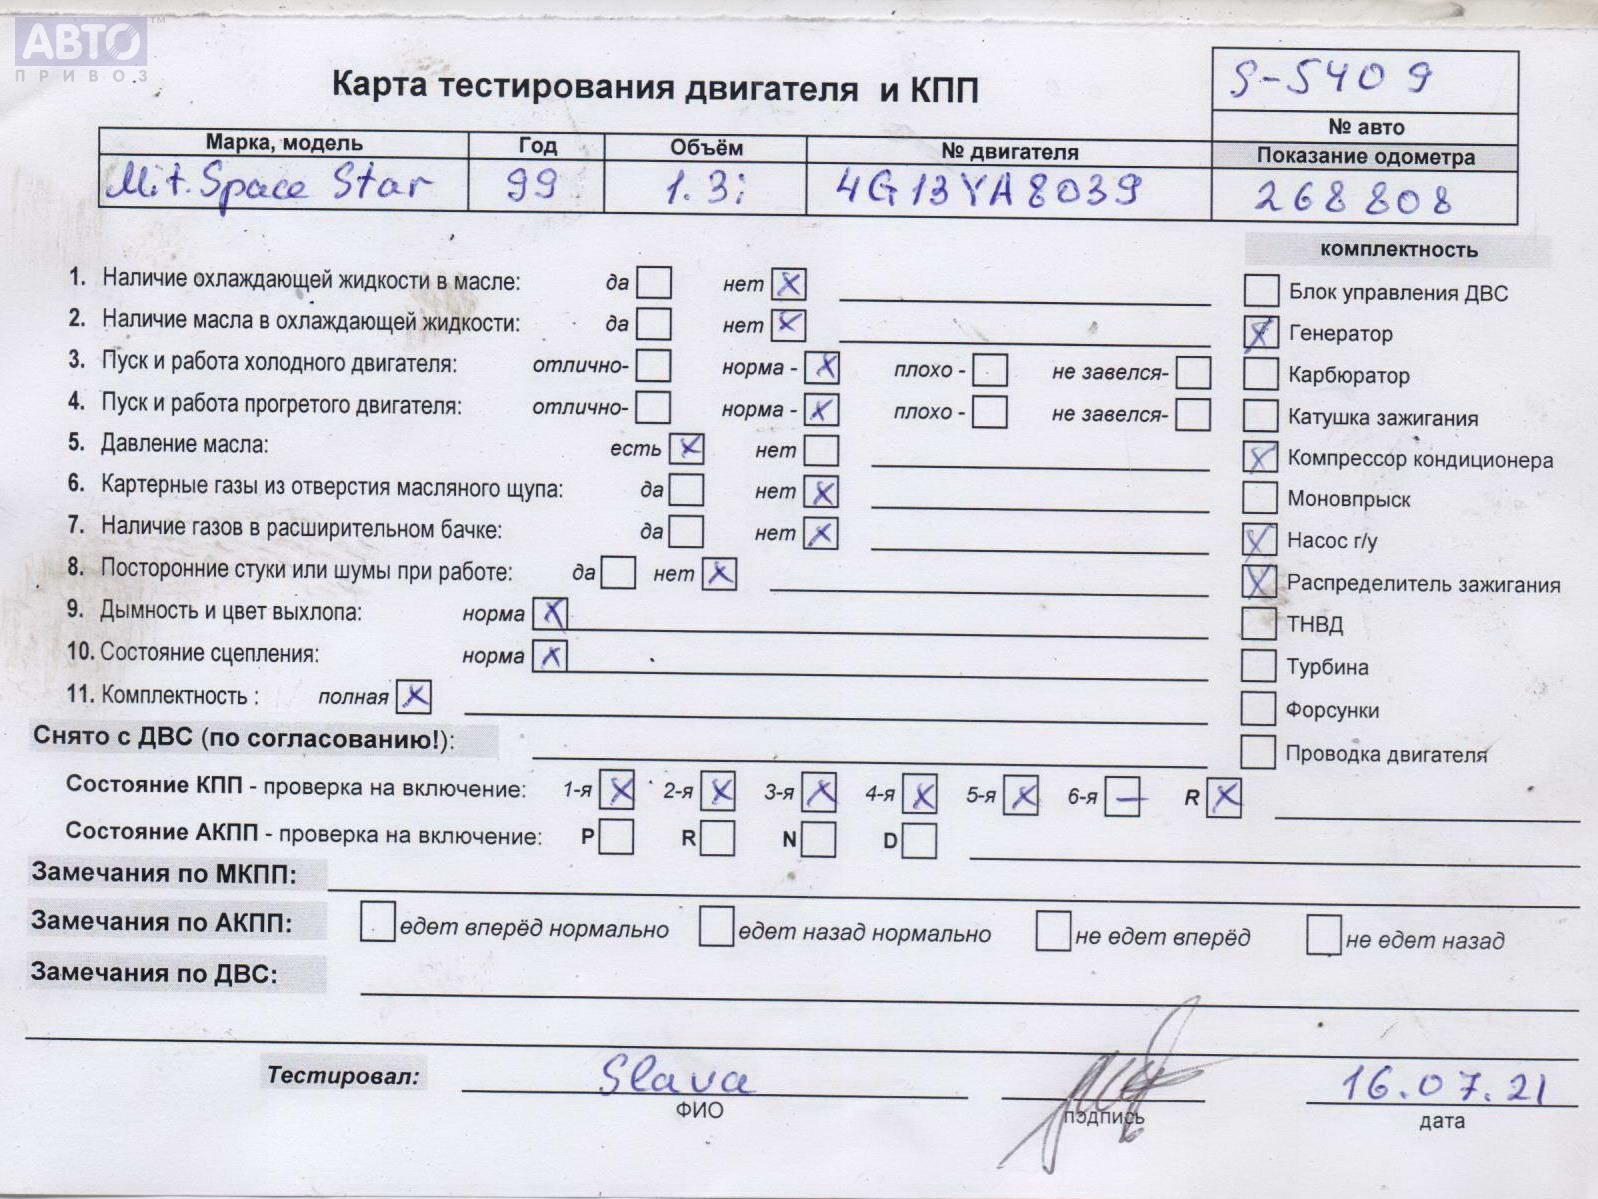 АВТО™
ПРИВОЗ
Карта тестирования двигателя и КПП
S-5409
№ авто
Марка, модель Год Объём № двигателя Показание одометра
Mit. Space Star 99 1.3i 4G13YA8039 268808
комплектность
1. Наличие охлаждающей жидкости в масле: да нет X
Блок управления ДВС
2. Наличие масла в охлаждающей жидкости: да нет X
X Генератор
3. Пуск и работа холодного двигателя: отлично- норма - X плохо - не завелся-
Карбюратор
4. Пуск и работа прогретого двигателя: отлично- норма - X плохо - не завелся-
Катушка зажигания
5. Давление масла: есть X нет
X Компрессор кондиционера
6. Картерные газы из отверстия масляного щупа: да нет X
Моновпрыск
7. Наличие газов в расширительном бачке: да нет X
X Насос г/у
8. Посторонние стуки или шумы при работе: да нет X
X Распределитель зажигания
9. Дымность и цвет выхлопа: норма X
ТНВД
10. Состояние сцепления: норма X
Турбина
11. Комплектность : полная X
Форсунки
Снято с ДВС (по согласованию!):
Проводка двигателя
Состояние КПП - проверка на включение: 1-я X 2-я X 3-я X 4-я X 5-я X 6-я — R X
Состояние АКПП - проверка на включение: P R N D
Замечания по МКПП:
Замечания по АКПП: едет вперёд нормально едет назад нормально не едет вперёд не едет назад
Замечания по ДВС:
Тестировал: Slava 16.07.21
ФИО подпись дата